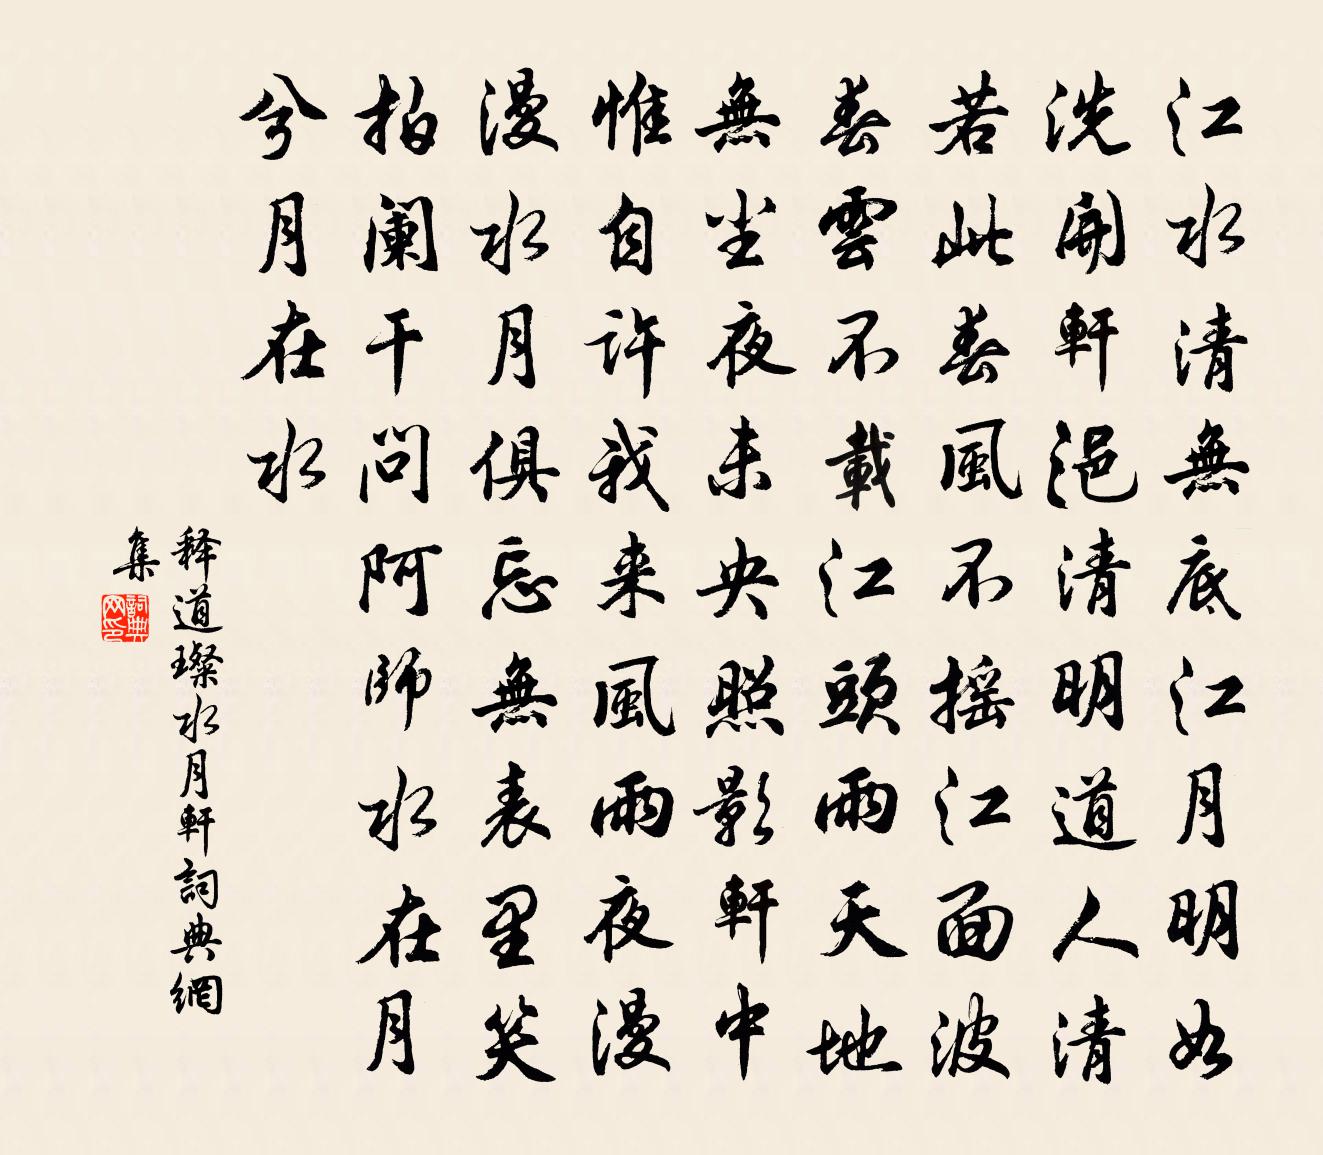 江水清無底江月明如
洗開軒浥清明道人清
若此春風不搖江面波
春雲不載江頭雨天地
無尘夜未央照影軒中
惟自許我来風雨夜漫
漫水月俱忘無表里笑
拍阑干問阿師水在月
兮月在水
释道璨水月軒詞典網
集
詞典
网印